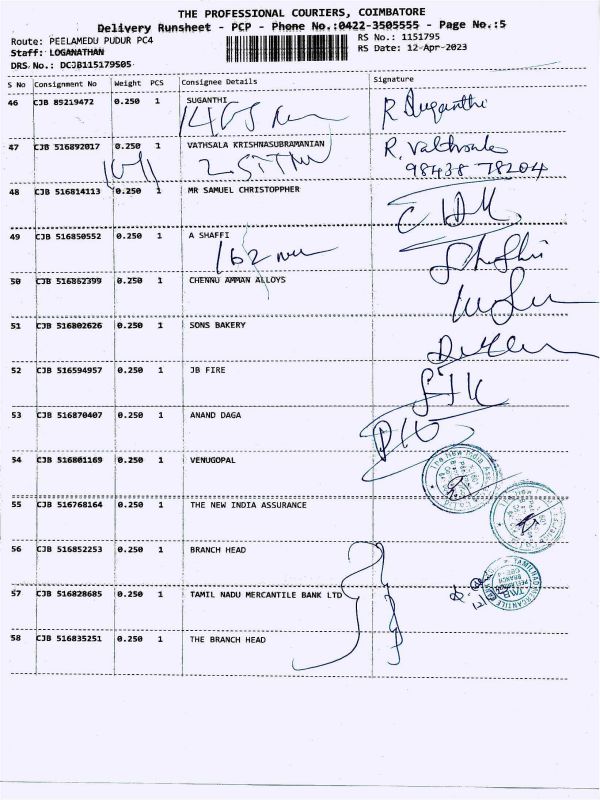 THE PROFESSIONAL COURIERS, COIMBATORE
Delivery Runsheet - PCP - Phone No.:0422-3505555 - Page No.:5
Route: PEELAMEDU PUDUR PC4 RS No.: 1151795
Staff: LOGANATHAN RS Date: 12-Apr-2023
DRS No.: DCJB115179505
S No Consignment No Weight PCS Consignee Details Signature
46 CJB 89219472 0.250 1 SUGANTHI R Suganthi
47 CJB 516892017 0.250 1 VATHSALA KRISHNASUBRAMANIAN R. Vathsala
98438 78204
48 CJB 516814113 0.250 1 MR SAMUEL CHRISTOPPHER
49 CJB 516850552 0.250 1 A SHAFFI
162
50 CJB 516862399 0.250 1 CHENNU AMMAN ALLOYS
51 CJB 516802626 0.250 1 SONS BAKERY
52 CJB 516594957 0.250 1 JB FIRE
53 CJB 516870407 0.250 1 ANAND DAGA
54 CJB 516801169 0.250 1 VENUGOPAL
The New India
55 CJB 516768164 0.250 1 THE NEW INDIA ASSURANCE
56 CJB 516852253 0.250 1 BRANCH HEAD
57 CJB 516828685 0.250 1 TAMIL NADU MERCANTILE BANK LTD
TAMILNAD MERCANTILE
TMB
PEELAMEDU
BRANCH
58 CJB 516835251 0.250 1 THE BRANCH HEAD